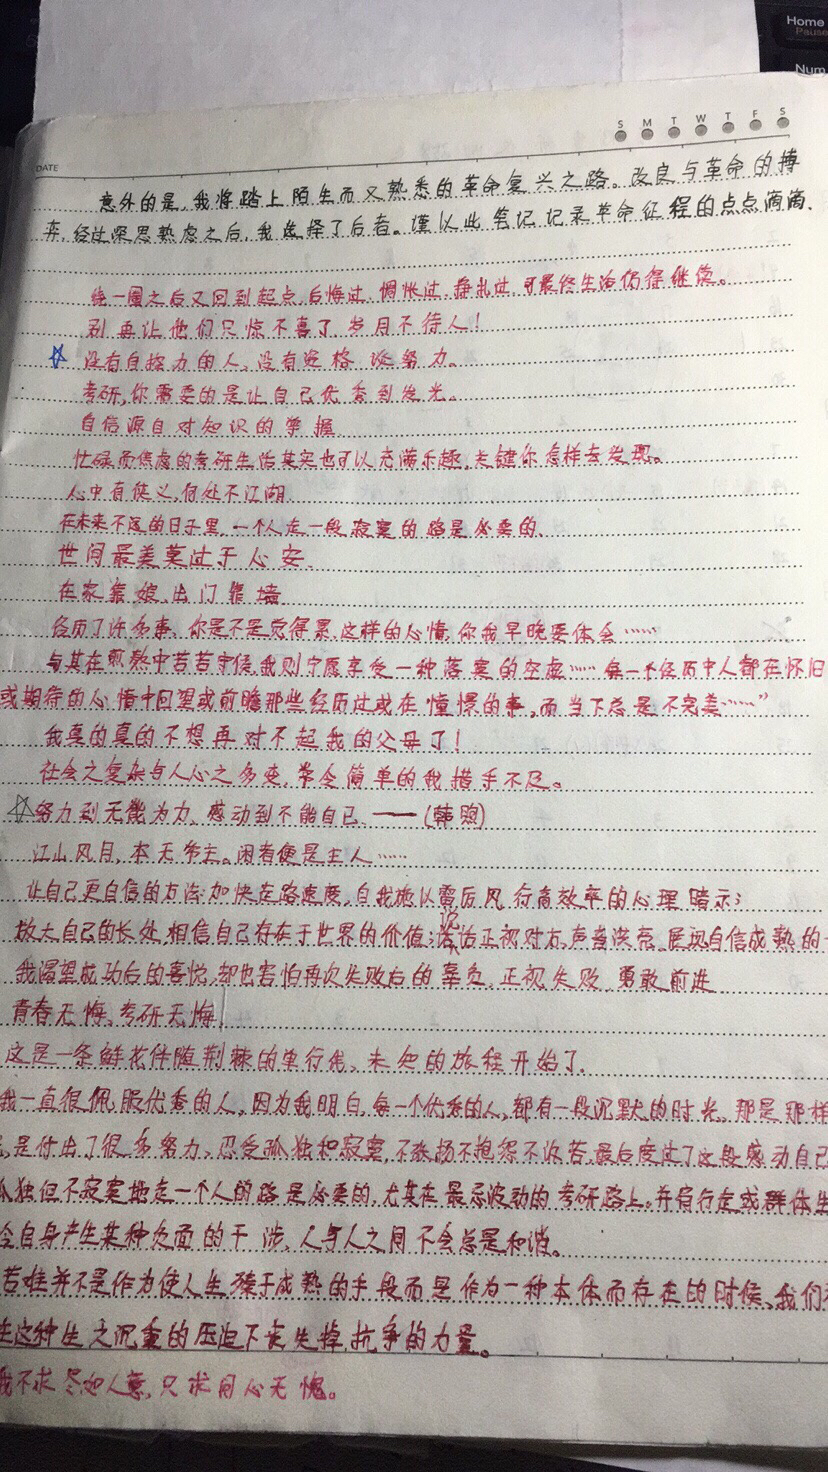 Home
Pause
Num
S M T W T F S
DATE
意外的是,我将踏上陌生而又熟悉的革命复兴之路。改良与革命的搏
弈,经过深思熟虑之后,我选择了后者。谨以此笔记记录革命征程的点点滴滴.
绕一圈之后又回到起点,后悔过、惆怅过、挣扎过,可最终生活仍得继续。
别再让他们只惊不喜了,岁月不待人!
☆ 没有自控力的人,没有资格谈努力。
考研,你需要的是让自己优秀到发光。
自信源自对知识的掌握
忙碌而焦虑的考研生活其实也可以充满乐趣,关键你怎样去发现。
心中有侠义,何处不江湖
在未来不远的日子里,一个人走一段寂寞的路是必要的.
世间最美莫过于心安.
在家靠娘,出门靠墙
经历了许多事、你是不是觉得累,这样的心情,你我早晚要体会……
与其在煎熬中苦苦守候,我则宁愿享受一种落寞的空虚……每一个经历中人都在怀旧
或期待的心情中回望或前瞻那些经历过或在憧憬的事,而当下总是不完美……”
我真的真的不想再对不起我的父母了!
社会之复杂与人心之多变,常令简单的我措手不及。
☆努力到无能为力、感动到不能自已 ——(韩煦)
江山风月,本无常主。闲者便是主人……
让自己更自信的方法:加快走路速度,自我施以雷厉风行高效率的心理暗示;
放大自己的长处,相信自己存在于世界的价值;说话正视对方,声音洪亮、展现自信成熟的一
我渴望成功后的喜悦,却也害怕再次失败后的辜负,正视失败,勇敢前进
青春无悔、考研无悔!
这是一条鲜花伴随荆棘的单行线、未知的旅程开始了.
我一直很佩服优秀的人,因为我明白,每一个优秀的人,都有一段沉默的时光、那是那样
是付出了很多努力、忍受孤独和寂寞,不张扬不抱怨不诉苦,最后度过了这段感动自己
孤独但不寂寞地走一个人的路是必要的,尤其在最忌波动的考研路上,并肩行走或群体生
会自身产生某种负面的干涉、人与人之间不会总是和谐。
苦难并不是作为使人生臻于成熟的手段而是作为一种本体而存在的时候、我们
生这种生之沉重的压迫下丧失掉抗争的力量。
我不求尽如人意,只求问心无愧。